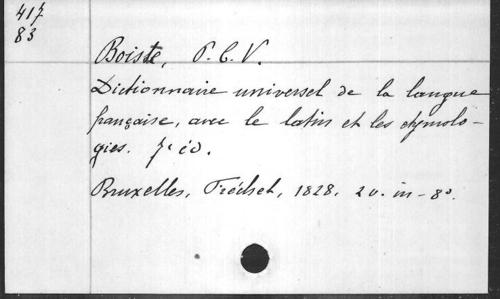 417
83
Boiste, P. C. V.
Dictionnaire universel de la langue
française, avec le latin et les etymolo-
gies. 7e éd.
Bruxelles, Fréchet, 1828. 2 v. in-8o.